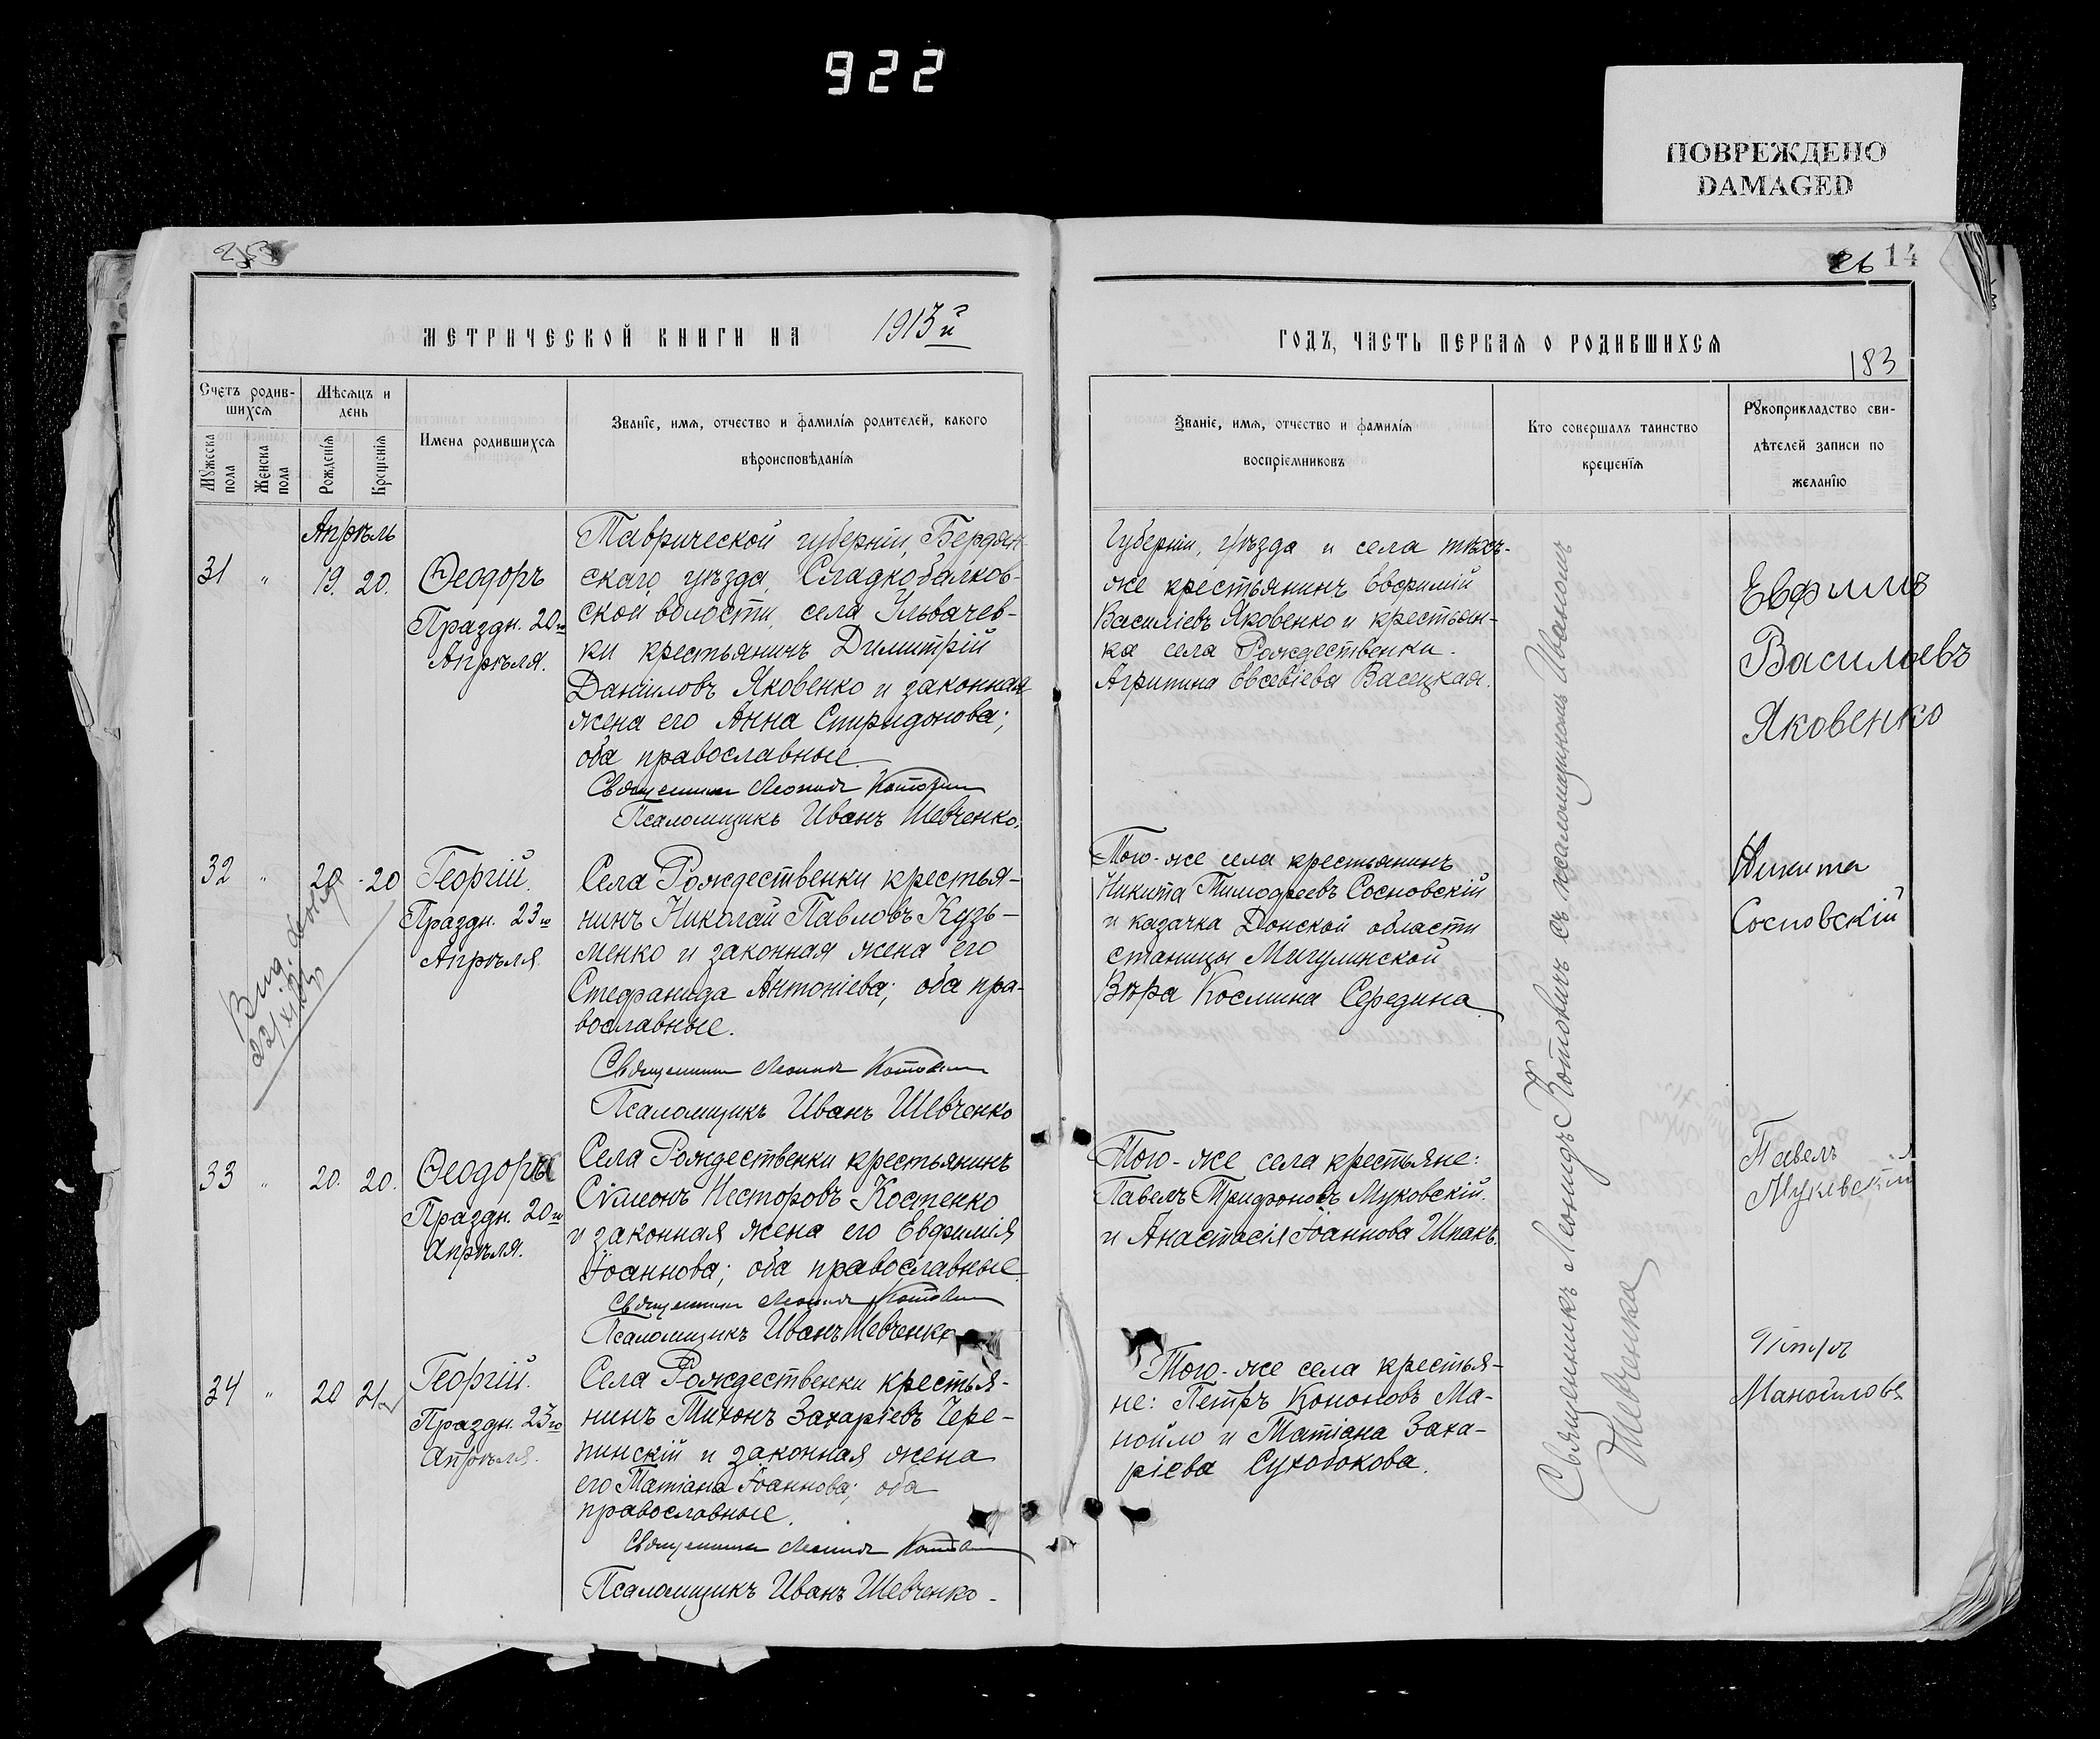 922
ПОВРЕЖДЕНО
DAMAGED
26 14
МЕТРИЧЕСКОЙ КНИГИ НА 1913й
ГОДЪ, ЧАСТЬ ПЕРВАЯ О РОДИВШИХСЯ
183
Счетъ родив-
шихся
Мѣсяцъ и
день
Мужеска
пола
Женска
пола
Рожденія
Крещенія
Имена родившихся
Званіе, имя, отчество и фамилія родителей, какого
вѣроисповѣданія
Званіе, имя, отчество и фамилія
воспріемниковъ
Кто совершалъ таинство
крещенія
Рукоприкладство сви-
дѣтелей записи по
желанію
Апрѣль
31 " 19. 20.
Ѳеодоръ
Праздн. 20го
Апрѣля.
Таврической губерніи, Бердян-
скаго уѣзда, Сладкобалков-
ской волости, села Ульвачев-
ки крестьянинъ Димитрій
Даніиловъ Яковенко и законная
жена его Анна Спиридонова;
оба православные.
Священникъ Леонидъ Котовичъ
Псаломщикъ Иванъ Шевченко.
Губерніи, уѣзда и села тѣхъ-
же крестьянинъ Евфимій
Василіевъ Яковенко и крестьян-
ка села Рождественки
Агрипина Евсевіева Васецкая.
Евфимъ
Васильевъ
Яковенко
32 " 20 - 20
Георгій.
Праздн. 23го
Апрѣля.
Села Рождественки крестья-
нинъ Николай Павловъ Кузь-
менко и законная жена его
Стефанида Антоніева; оба пра-
вославные.
Священникъ Леонидъ Котовичъ
Псаломщикъ Иванъ Шевченко
Того-же села крестьянинъ
Никита Тимофеевъ Сосновскій
и казачка Донской области
станицы Мигулинской
Вѣра Космина Середина.
Никита
Сосновскій
33 " 20. 20.
Ѳеодоръ
Праздн. 20го
Апрѣля.
Села Рождественки крестьянинъ
Сѵмеонъ Несторовъ Костенко
и законная жена его Евфимія
Іоаннова; оба православные.
Священникъ Леонидъ Котовичъ
Псаломщикъ Иванъ Шевченко
Того-же села крестьяне:
Павелъ Трифоновъ Муковскій.
и Анастасія Іоаннова Шпакъ.
Павелъ
Муковскій
34 " 20 21
Георгій.
Праздн. 23го
Апрѣля.
Села Рождественки крестья-
нинъ Тихонъ Захаріевъ Чере-
пинскій и законная жена
его Татіана Іоаннова; оба
православные.
Священникъ Леонидъ Котовичъ
Псаломщикъ Иванъ Шевченко.
Того-же села крестья-
не: Петръ Кононовъ Ма-
нойло и Татіана Заха-
ріева Сухобокова.
Петръ
Манойловъ
Священникъ Леонидъ Котовичъ съ псаломщикомъ Иваномъ
Шевченка